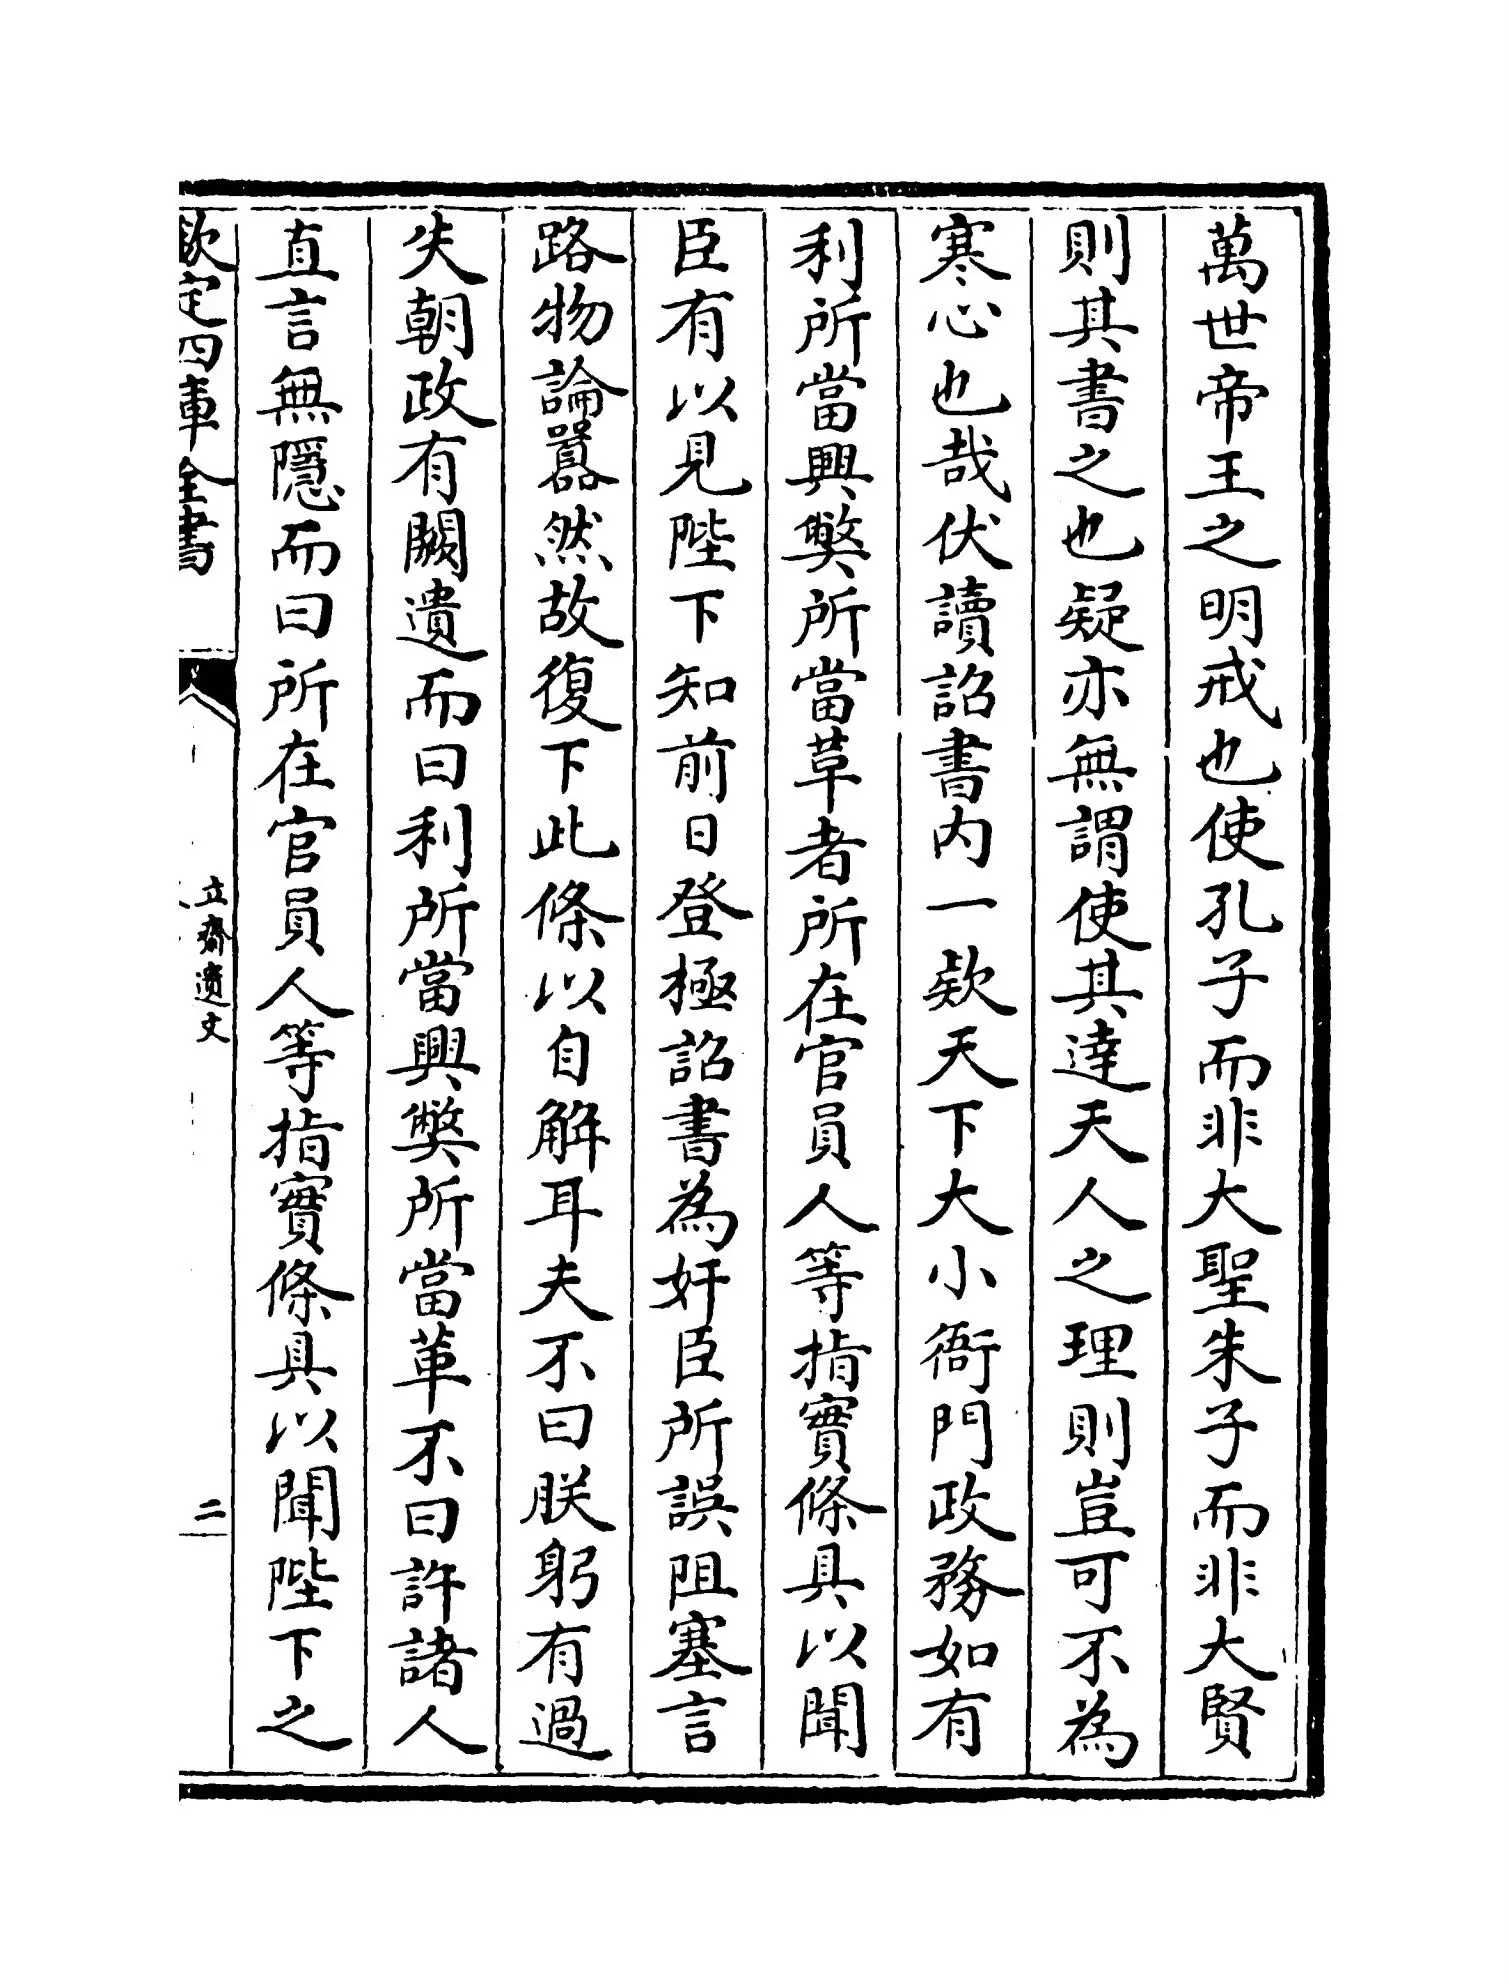 萬世帝王之明戒也使孔子而非大聖朱子而非大賢
則其書之也疑亦無謂使其達天人之理則豈可不為
寒心也哉伏讀詔書内一欵天下大小衙門政務如有
利所當興弊所當草者所在官員人等指實條具以聞
臣有以見陛下知前日登極詔書為奸臣所誤阻塞言
路物論嚚然故復下此條以自解耳夫不曰朕躬有過
失朝政有闕遺而曰利所當興弊所當革不曰許諸人
直言無隱而曰所在官員人等指實條具以聞陛下之
欽定四庫全書
立齋遺文
二